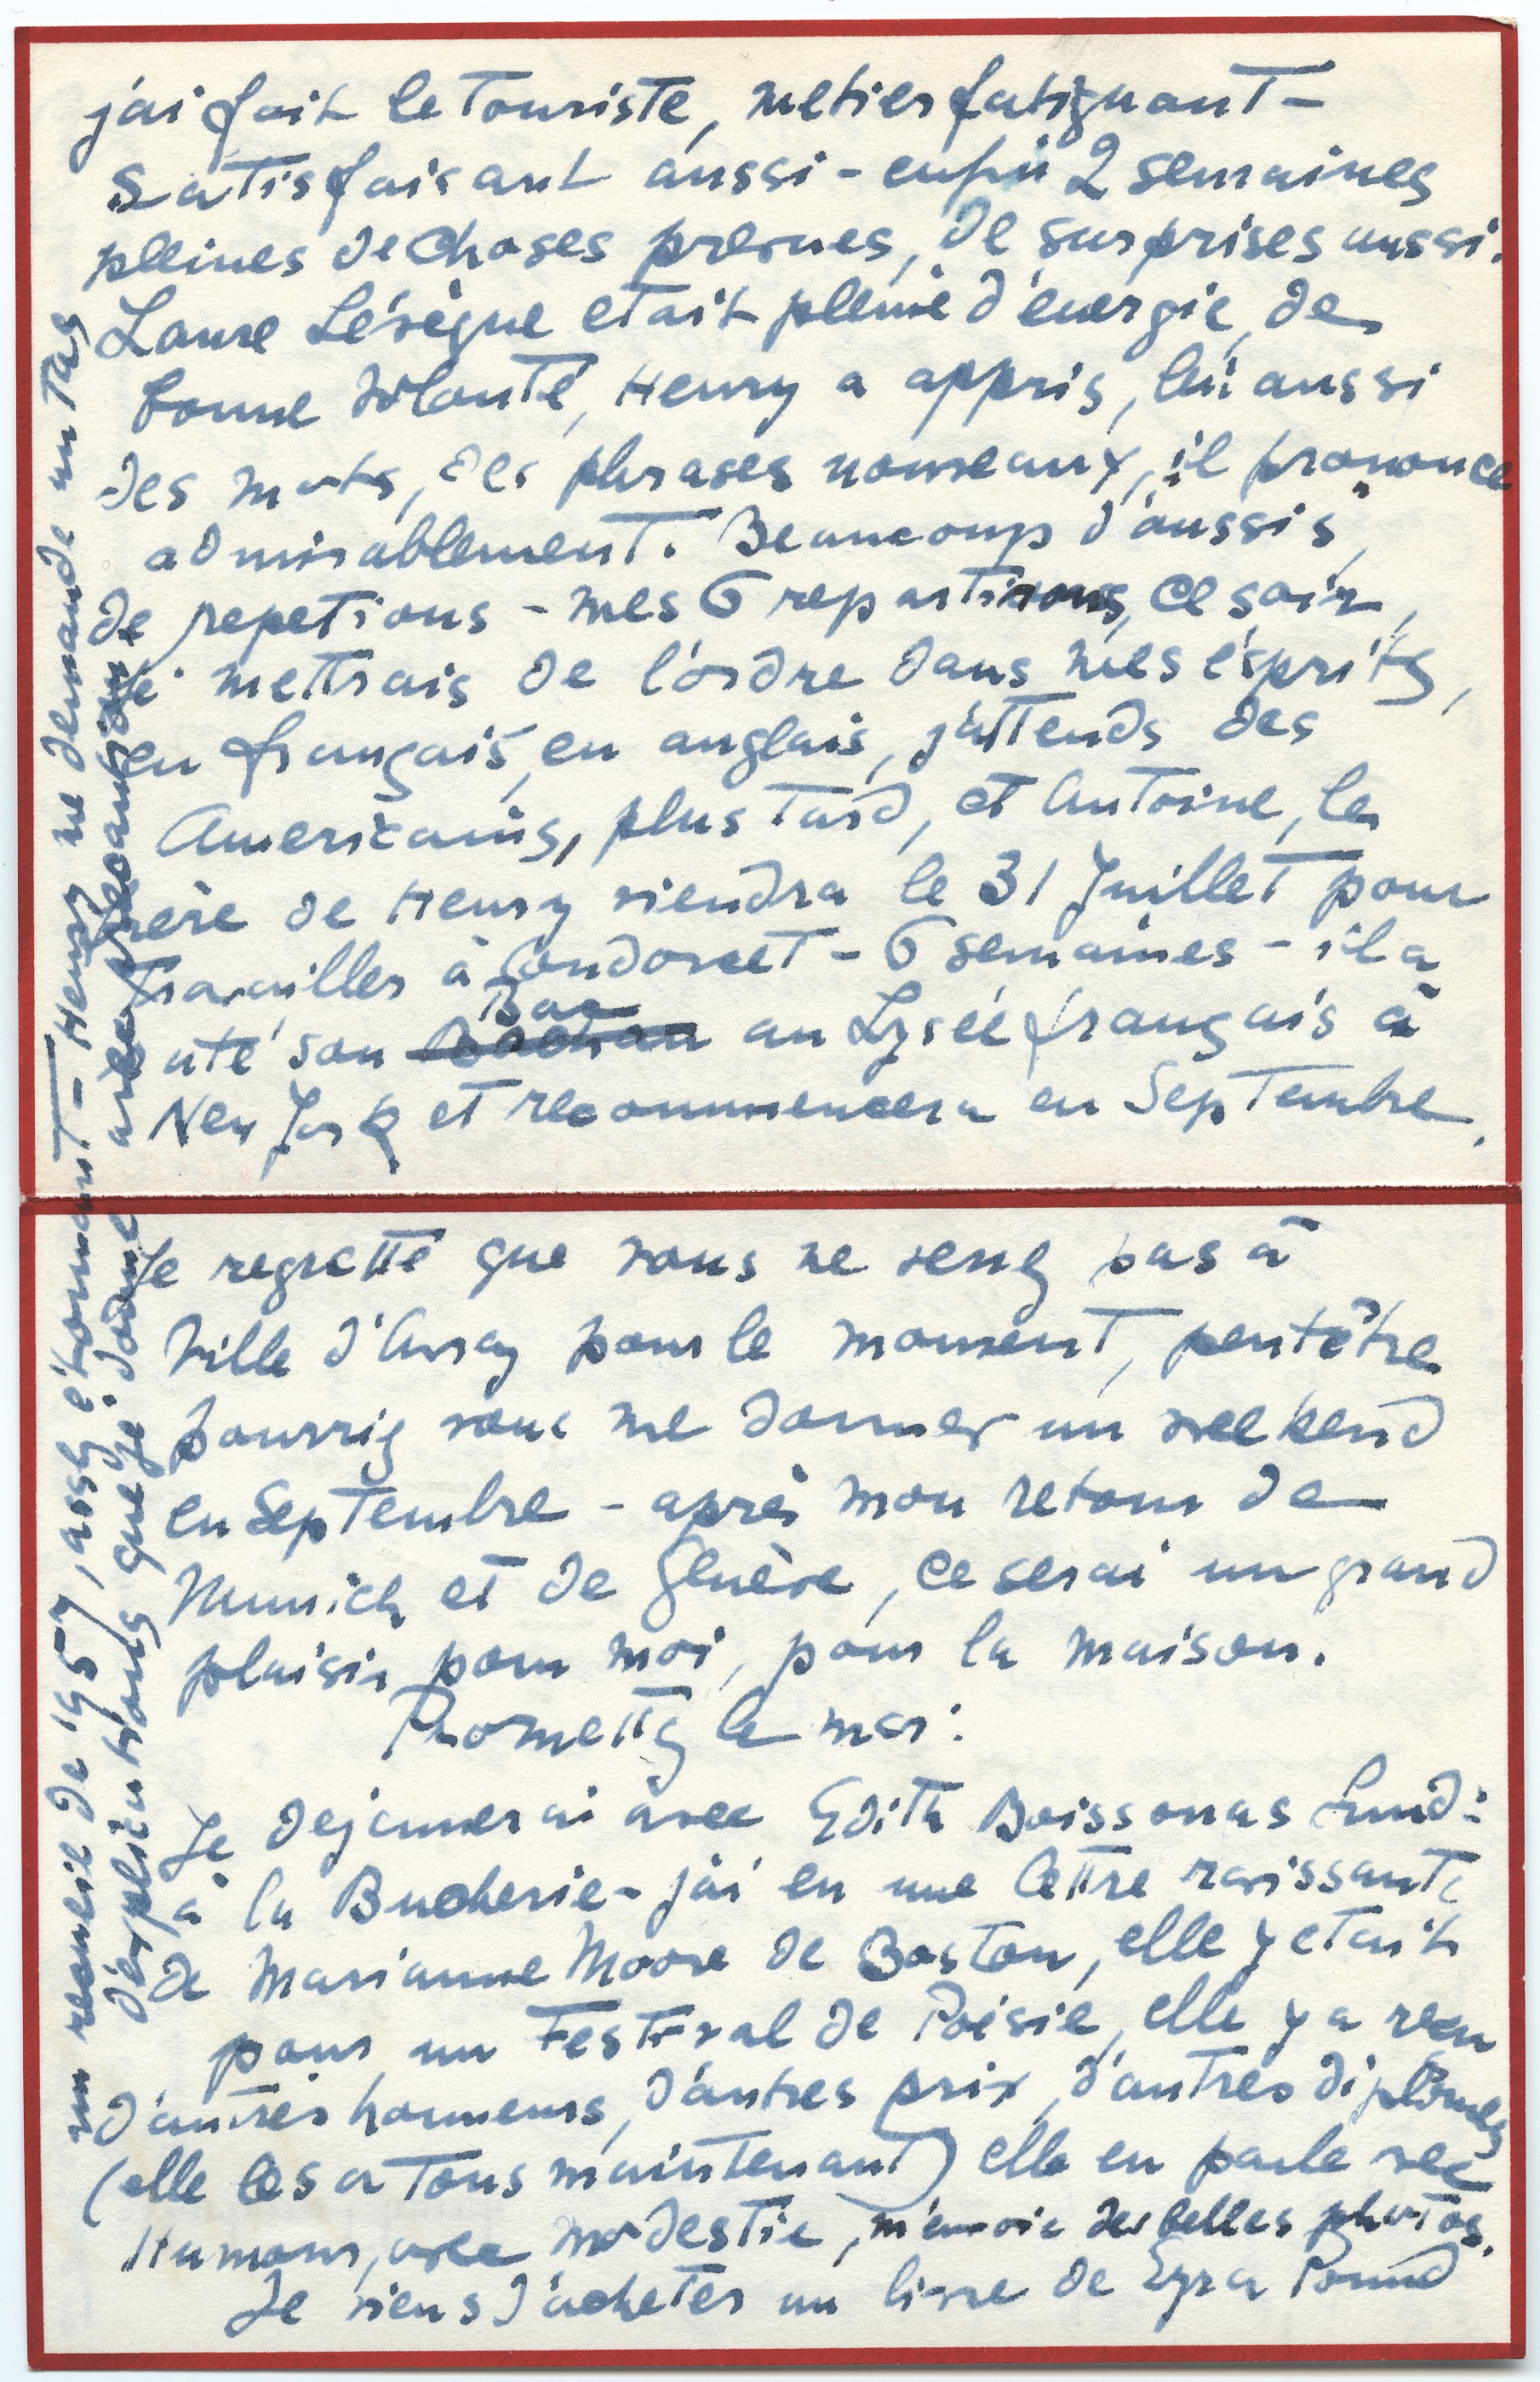 j'ai fait le touriste, metier fatiguant -
satisfaisant aussi - enfin 2 semaines
pleines de choses prevues, de surprises aussi.
Laure Lévèque etait pleine d'énergie, de
bonne volonté, Henry a appris, lui aussi
des mots, des phrases nouveaux, il prononce
admirablement. Beaucoup d'"aussis",
de repetions - mes 6 repartirons, ce soir,
je mettrais de l'ordre dans mes ésprits,
en français, en anglais, j'attends des
Americains, plus tard, et Antoine, le
frère de Henry viendra le 31 Juillet pour
travailler à Condorcet - 6 semaines - il a
uté son Bac au Lysée français à
New York et recommencera en Septembre.
Je regrette que vous ne venez pas à
Ville d'Avray pour le moment, peutêtre
pourriz vous me donner un weekend
en Septembre - après mon retour de
Munich et de Genève, ce serai un grand
plaisir pour moi, pour la maison.
Promettez le moi:
Je dejeunerai avec Edith Boissonas Lundi
à la Bucherie - j'ai eu une lettre ravissante
de Marianne Moore de Boston, elle y etait
pour un Festival de Poésie, elle y a reçu
d'autres honneurs, d'autres prix, d'autres diplômes
(elle les a tous maintenant) elle en parle vec
Humour, avec modestie, m'envoie des belles photos.
Je viens d'acheter un livre de Ezra Pound
un receuil de 1957, assez étonnant - Henry me demande un tas
d'explications que je donne avec précaution